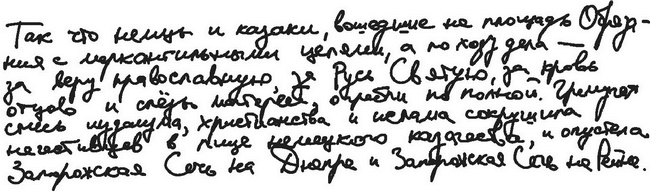 Так что немцы и казаки, вошедшие на площадь Обрез-
ния с меркантильными целями, а по ходу дела —
за веру православную, за Русь Святую, за кровь
отцов и слёзы матерей, огребли по полной. Гремучая
смесь иудаизма, христианства и ислама сокрушила
негативцев в лице немецкого казачества, и опустела
Запорожская Сечь на Днепре и Запорожская Сечь на Рейне.